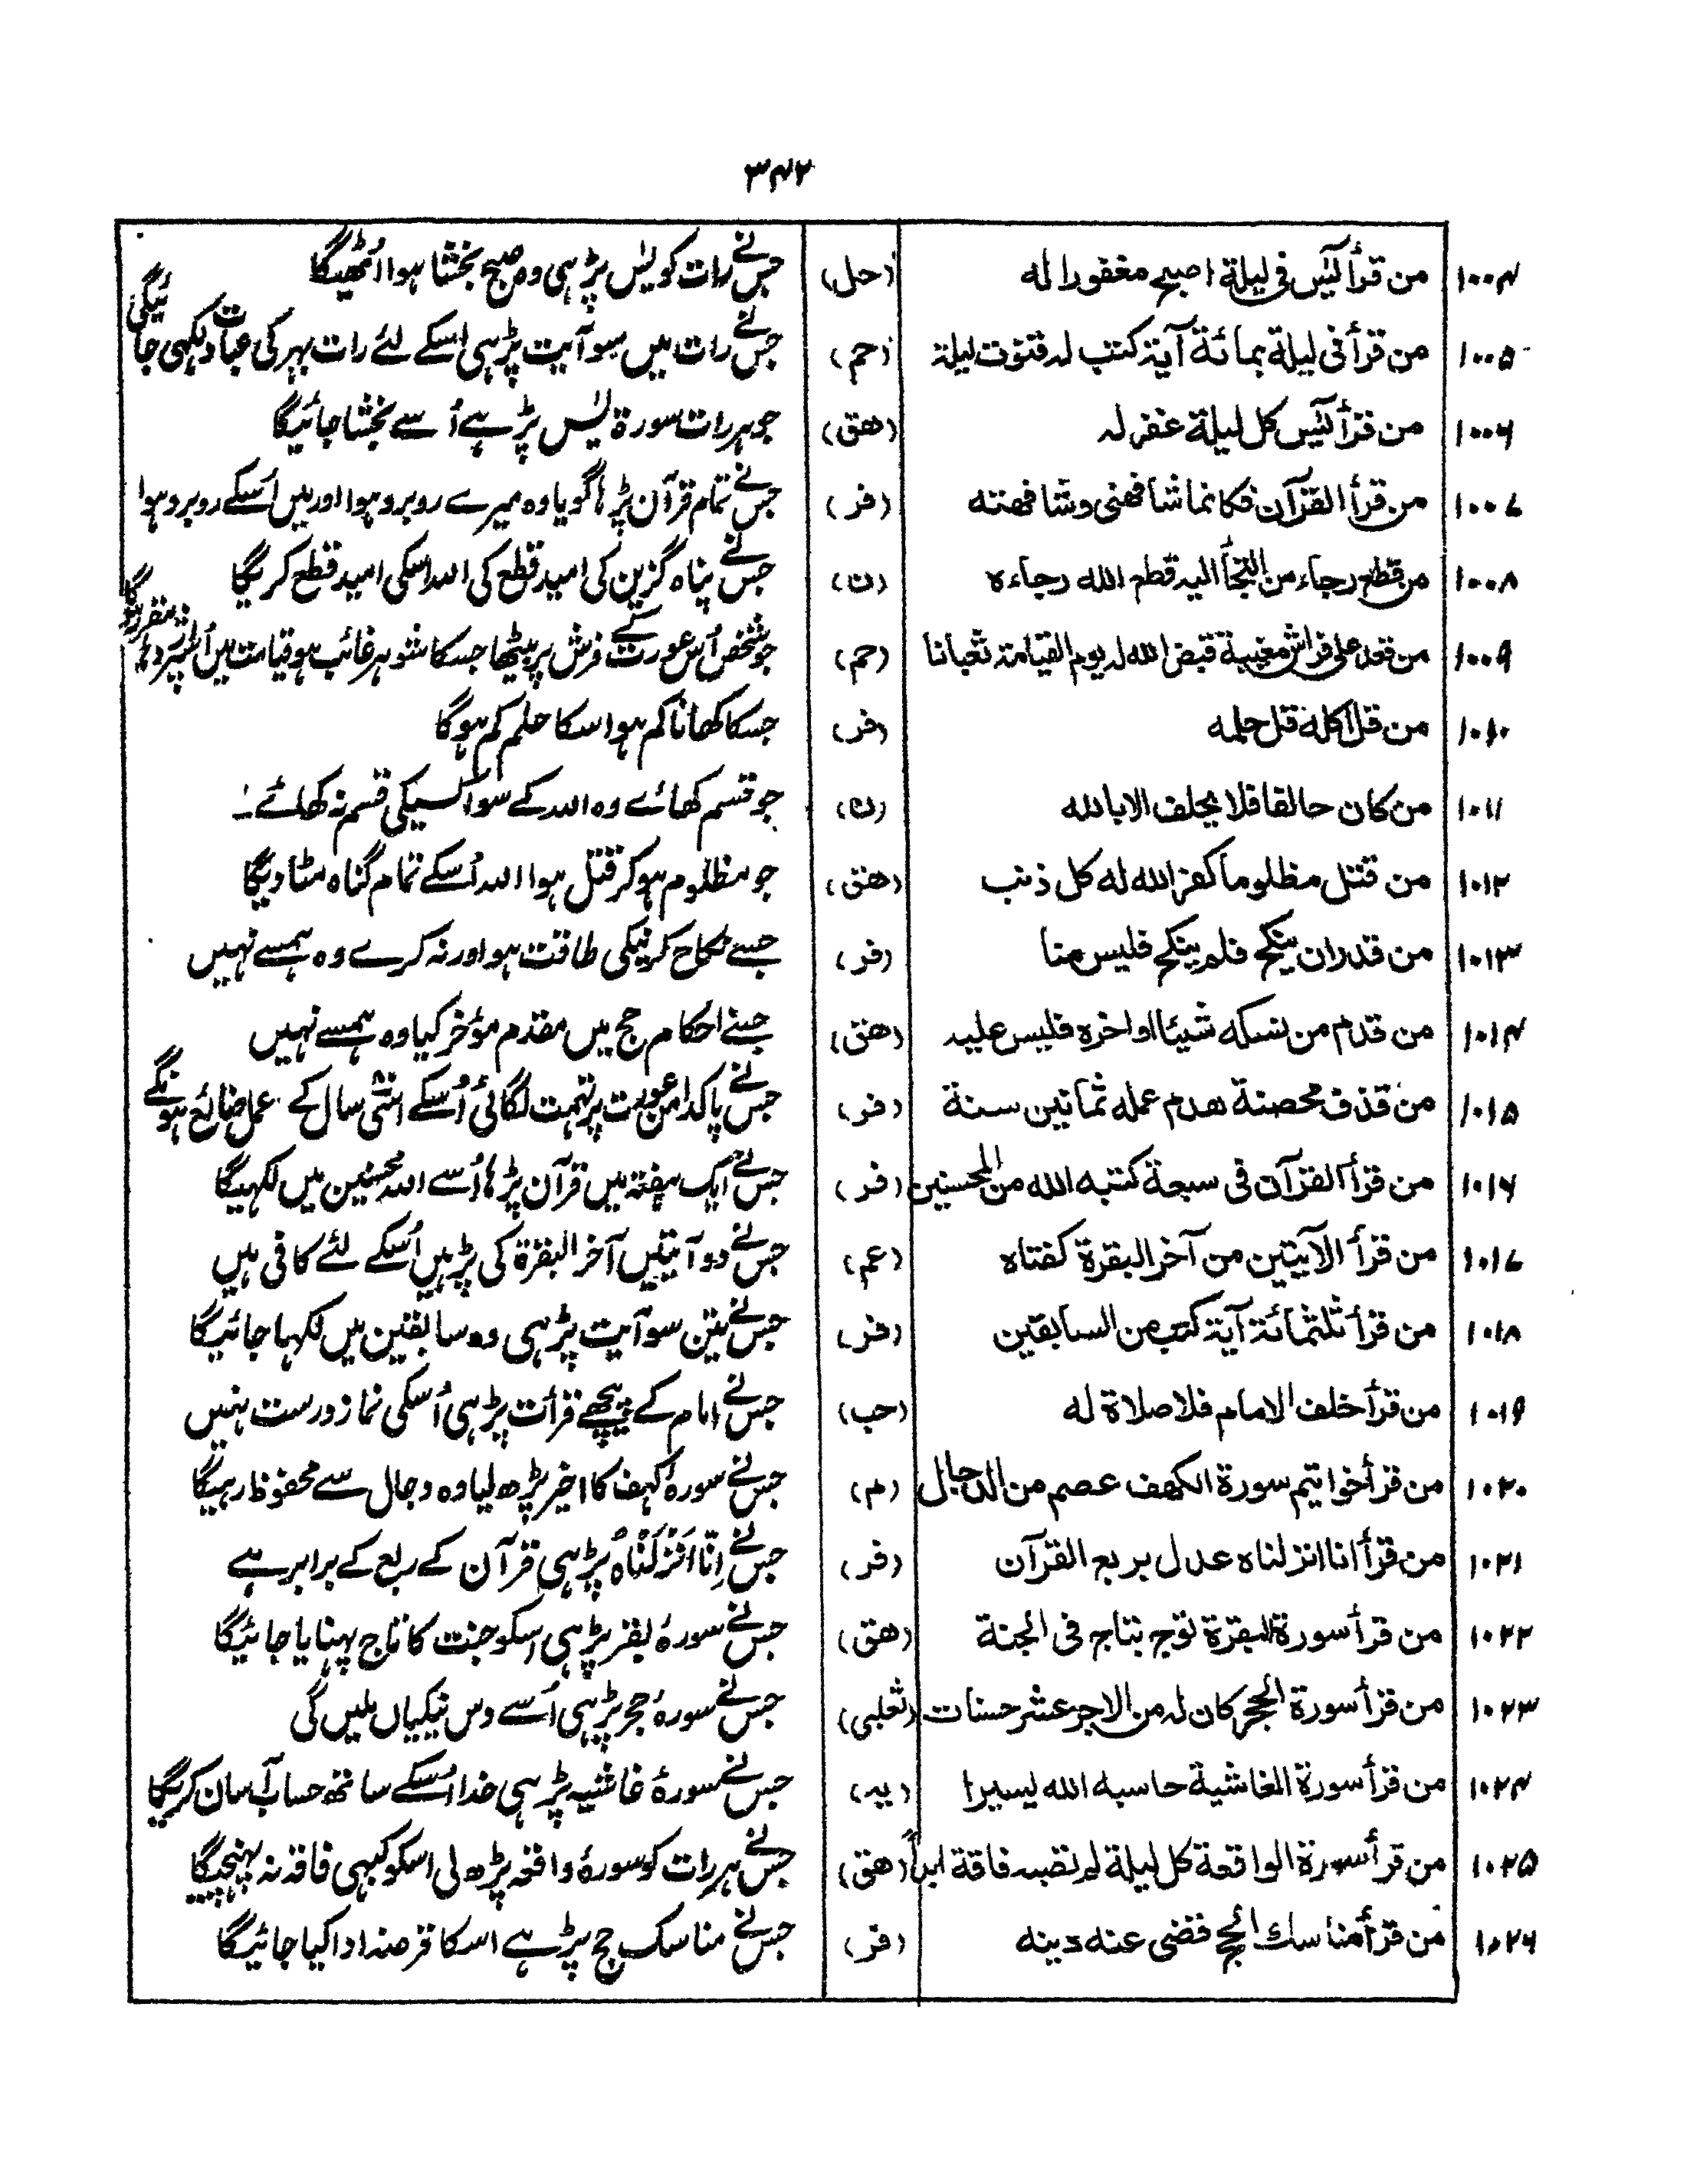 ۳۴۲
۱۰۰۴ من قرأ یٰس فی لیلة اصبح مغفورا له (حل) جس نے رات کو یٰس پڑہی وہ صبح بخشا ہوا اُٹھیگا
۱۰۰۵ من قرأ فی لیلة بمائة آیة کتب له قنوت لیلة (حم) جس نے رات میں سو آیت پڑہی اسکے لئے رات بہر کی عبادت لکہی جائیگی
۱۰۰۶ من قرأ یٰس کل لیلة غفر له (هق) جو ہر رات سورة یٰس پڑہے اُسے بخشا جائیگا
۱۰۰۷ من قرأ القرآن فکانما شافهنی وشافهته (فر) جس نے تمام قرآن پڑہا گویا وہ میرے روبرو ہوا اور میں اُسکے روبرو ہوا
۱۰۰۸ من قطع رجاء من التجأ الیه قطع الله رجاءه (ن) جس نے پناہ گزین کی امید قطع کی اللہ اسکی امید قطع کریگا
۱۰۰۹ من قعد علی فراش مغیبة قبض الله له یوم القیامة ثعبانا (حم) جو شخص اُس عورت کے فرش پر بیٹھا جسکا شوہر غائب ہو قیامت میں اُسپر اژدہا مقرر ہوگا
۱۰۱۰ من قل اکله قل حلمه (فر) جسکا کھانا کم ہو اسکا حلم کم ہوگا
۱۰۱۱ من کان حالفا فلا یحلف الا بالله (ن) جو قسم کھائے وہ اللہ کے سوا کسیکی قسم نہ کھائے۔
۱۰۱۲ من قتل مظلوما کفر الله له کل ذنب (هق) جو مظلوم ہو کر قتل ہوا اللہ اُسکے تمام گناہ مٹا دیگا
۱۰۱۳ من قدر ان ینکح فلم ینکح فلیس منا (فر) جسے نکاح کرنیکی طاقت ہو اور نہ کرے وہ ہمسے نہیں
۱۰۱۴ من قدم من نسکه شیئا او اخره فلیس علیه (هق) جسنے احکام حج میں مقدم مؤخر کیا وہ ہمسے نہیں
۱۰۱۵ من قذف محصنة هدم عمله ثمانین سنة (فر) جس نے پاکدامن عورت پر تہمت لگائی اُسکے اسّی سال کے عمل ضائع ہونگے
۱۰۱۶ من قرأ القرآن فی سبعة کتبه الله من المحسنین (فر) جس نے ایک ہفتہ میں قرآن پڑہا اُسے اللہ محسنین میں لکہیگا
۱۰۱۷ من قرأ الآیتین من آخر البقرة کفتاه (عم) جس نے دو آیتیں آخر البقرة کی پڑہیں اُسکے لئے کافی ہیں
۱۰۱۸ من قرأ ثلثمائة آیة کتب من السابقین (فر) جس نے تین سو آیت پڑہی وہ سابقین میں لکہا جائیگا
۱۰۱۹ من قرأ خلف الامام فلا صلاة له (حب) جس نے امام کے پیچھے قرأت پڑہی اُسکی نماز درست نہیں
۱۰۲۰ من قرأ خواتیم سورة الکهف عصم من الدجال (م) جس نے سورۂ کہف کا اخیر پڑھ لیا وہ دجال سے محفوظ رہیگا
۱۰۲۱ من قرأ انا انزلناه عدل بربع القرآن (فر) جس نے اِنّا اَنْزَلْنَاهُ پڑہی قرآن کے ربع کے برابر ہے
۱۰۲۲ من قرأ سورة البقرة توج بتاج فی الجنة (هق) جس نے سورۂ بقر پڑہی اسکو جنت کا تاج پہنایا جائیگا
۱۰۲۳ من قرأ سورة الحجر کان له من الاجر عشر حسنات (ثعلبی) جس نے سورۂ حجر پڑہی اُسے دس نیکیاں ملیں گی
۱۰۲۴ من قرأ سورة الغاشیة حاسبه الله یسیرا (ید) جس نے سورۂ غاشیہ پڑہی خدا اُسکے ساتھ حساب آسان کریگا
۱۰۲۵ من قرأ سورة الواقعة کل لیلة لم تصبه فاقة ابداً (هق) جس نے ہر رات کو سورۂ واقعہ پڑھ لی اسکو کبہی فاقہ نہ پہنچیگا
۱۰۲۶ من قرأ مناسك الحج قضی عنه دینه (فر) جس نے مناسک حج پڑہے اسکا قرضہ ادا کیا جائیگا